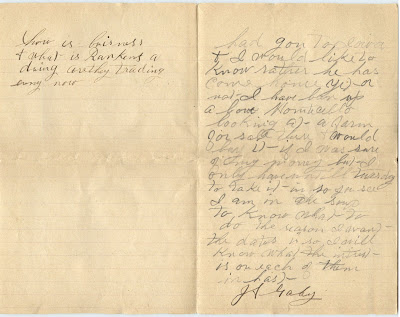 how is bisness
& what is Rankens a
doing are they trading
eny now
had gon to
& I would like to
know rather he has
come home yet or
not I have ben up
a bove Monticello
looking at a farm
for sale there I would
buy it if I was sure
of my money but I
only have untill tuesday
to take it in so you see
I am in the soup
to know what to
do the reason I want
the dates is so I will
know what the intrest
is on each of them
in hast
J S Gady